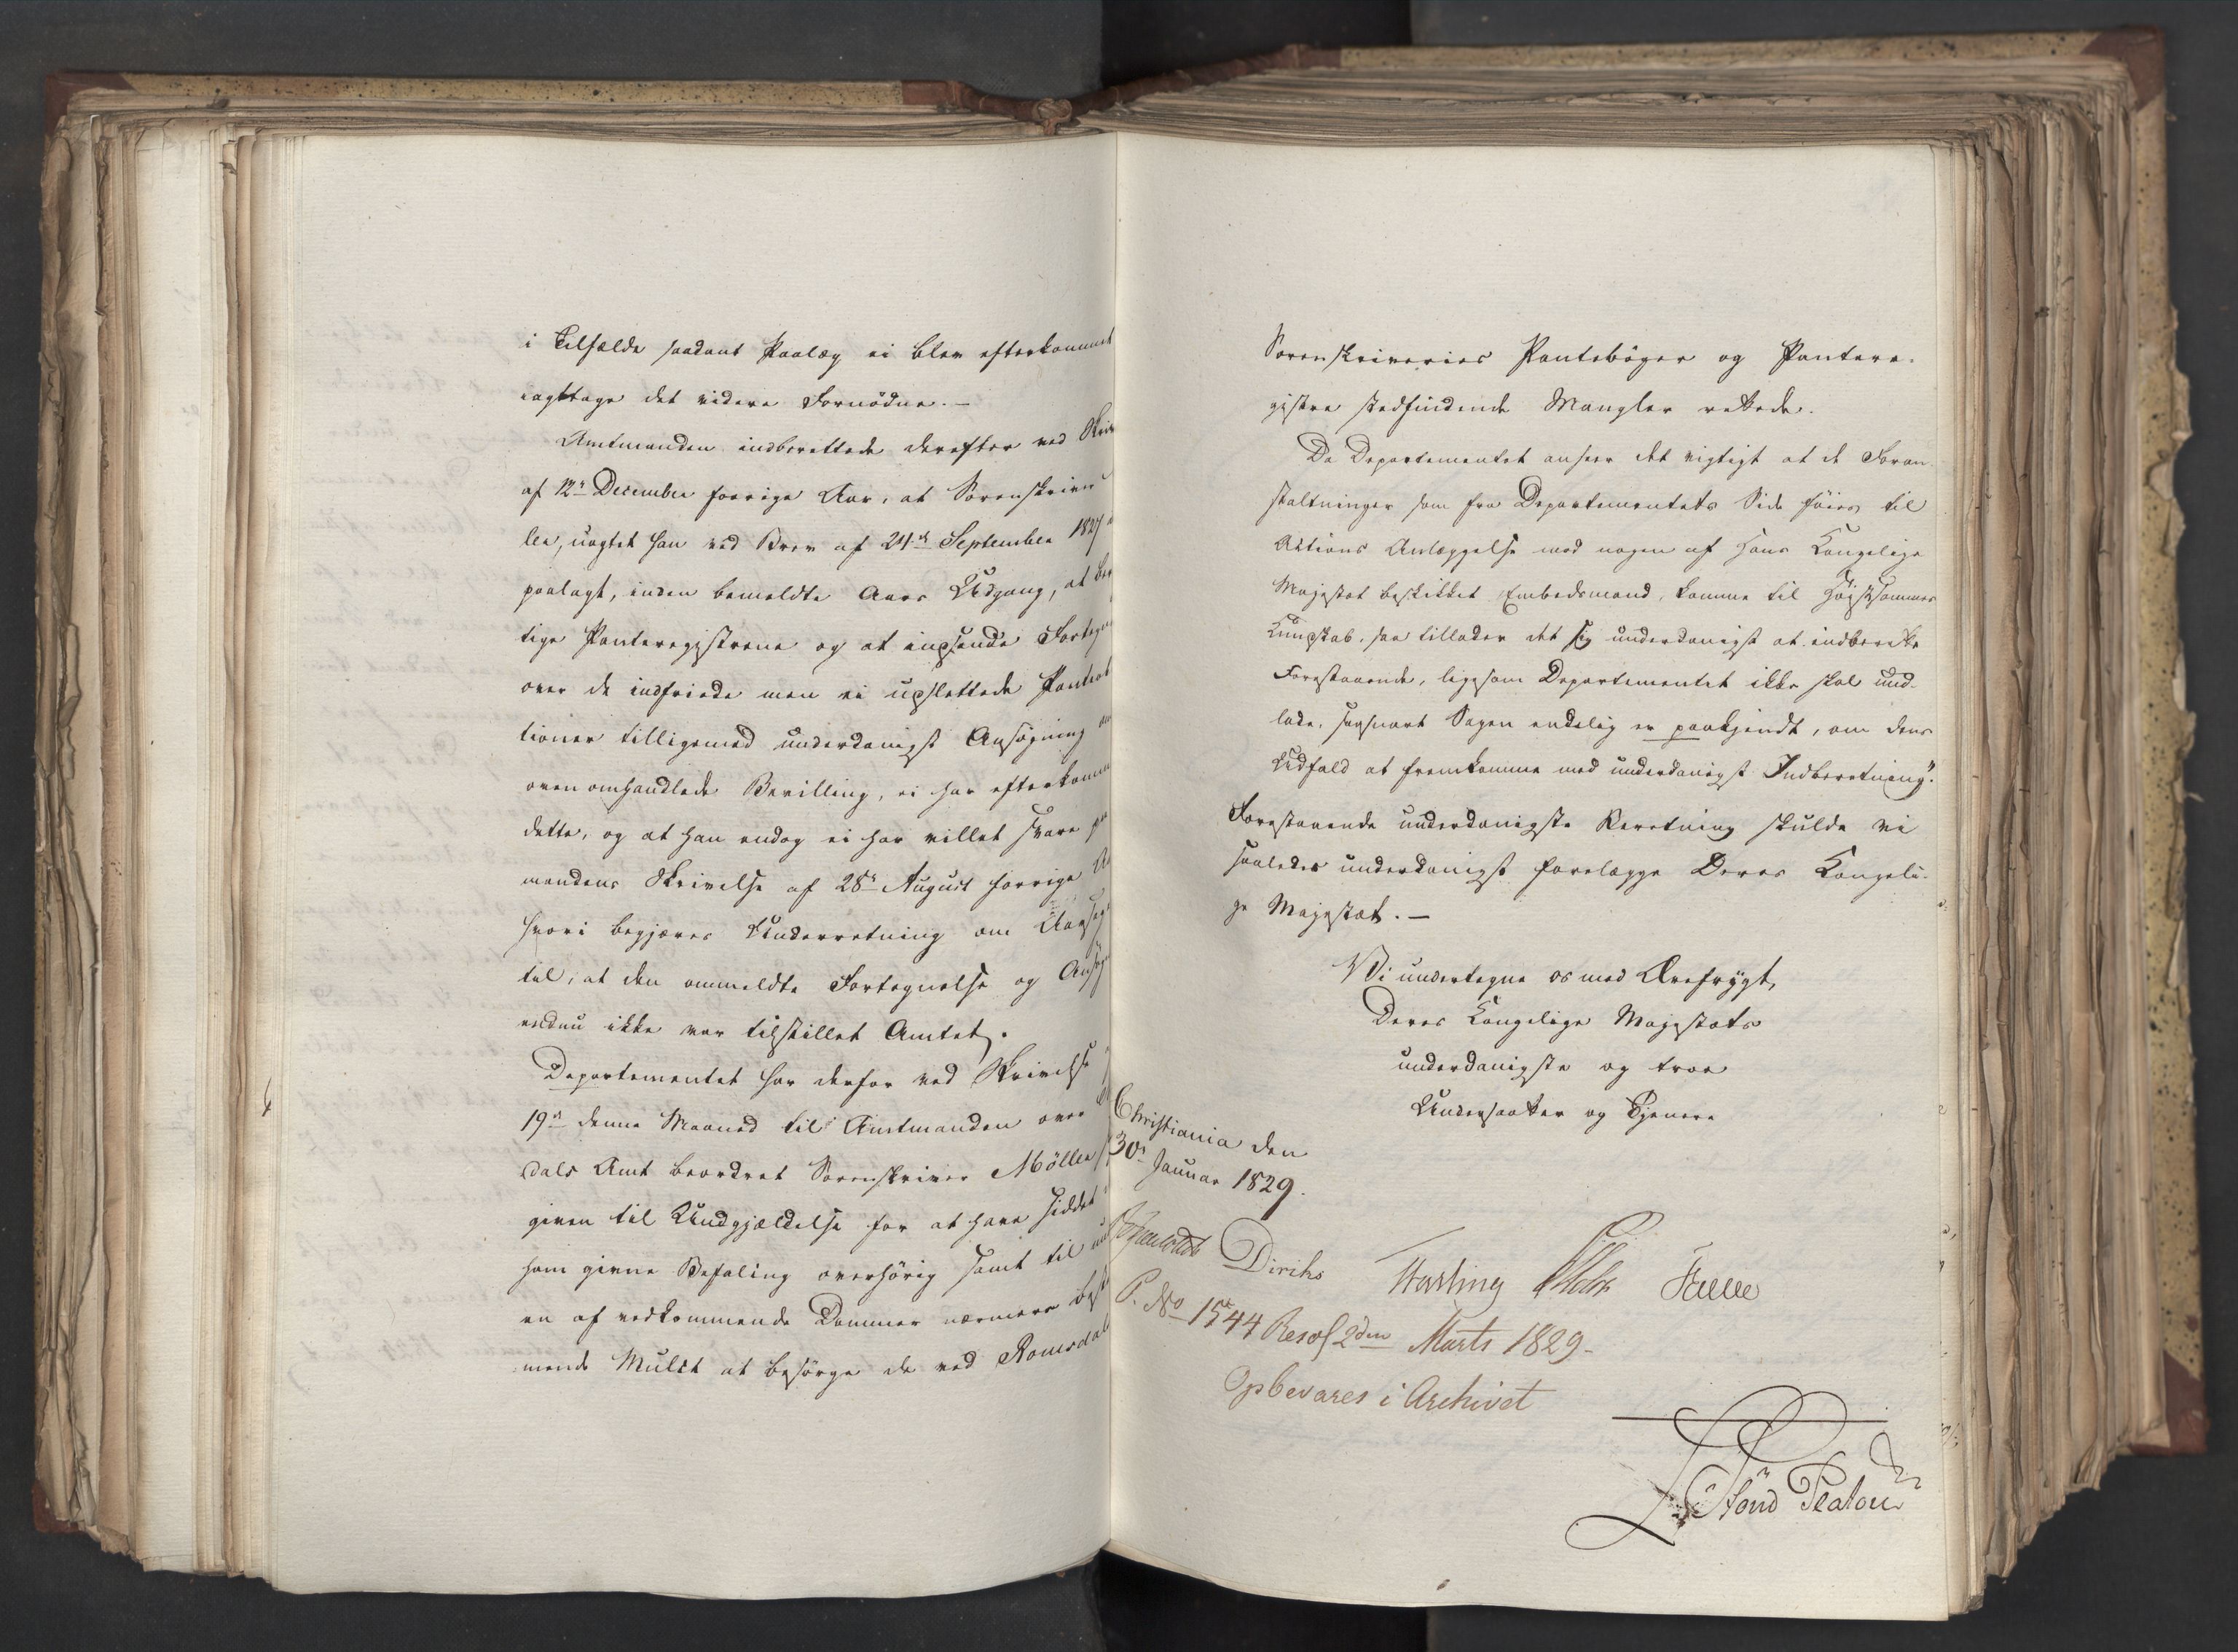 i Tilfælde saadant Paalæg ei blev efterkommet
iagttage det videre Fornødne.—
Amtmanden indberettede derefter ved Skriv
af 12te December forrige Aar, at Sorenskriver
ler, uagtet han ved Brev af 24de September 1827
paalagt, inden bemeldte Aars Udgang, at ber
tige Panteregistrene og at indsende Forteg
over de indfriede men ei udslettede Panteob
tioner tilligemed underdanigst Ansøgning om
ovenomhandlede Bevilling, ei har efterkomm
dette, og at han endog ei har villet svare paa
mandens Skrivelse af 28de August forrige Aa
hvori begjæres Underretning om Aarsag
til, at den ommeldte Fortegnelse og Ansøg
endnu ikke var tilstillet Amtet.
Departementet har derfor ved Skrivelse
19de denne Maaned til Amtmanden over
dals Amt beordret Sorenskriver Möller
given til Undgjældelse for at have siddet
ham givne Befaling overhörig samt til un
en af vedkommende Dommer nærmere best
mende Mulct at besörge de ved Romsdal
Sorenskriveries Pantebøger og Pantere-
gistre stedfindende Mangler rettede.
Da Departementet anseer det vigtigt at de Foran-
staltninger som fra Departementets Side föies til
Actions Anlæggelse mod nogen af Hans Kongelige
Majestæt beskikket Embedsmand, komme til Høistsammes
Kundskab, saa tillader det sig underdanigst at indberette
Forestaaende, ligesom Departementet ikke skal und-
lade, saasnart Sagen endelig er paakjendt, om dens
Udfald at fremkomme med underdanigst Indberetning".
Forestaaende underdanigste Beretning skulde vi
saaledes underdanigst forelægge Deres Kongeli-
ge Majestæt.—
Vi undertegne os med Ærefrygt,
Deres Kongelige Majestæts
underdanigste og troe
Undersaatter og Tjenere
Christiania den
30te Januar 1829.
Diriks
P. No 1544 Resol 2den Marts 1829.
Opbevares i Archivet
Platou